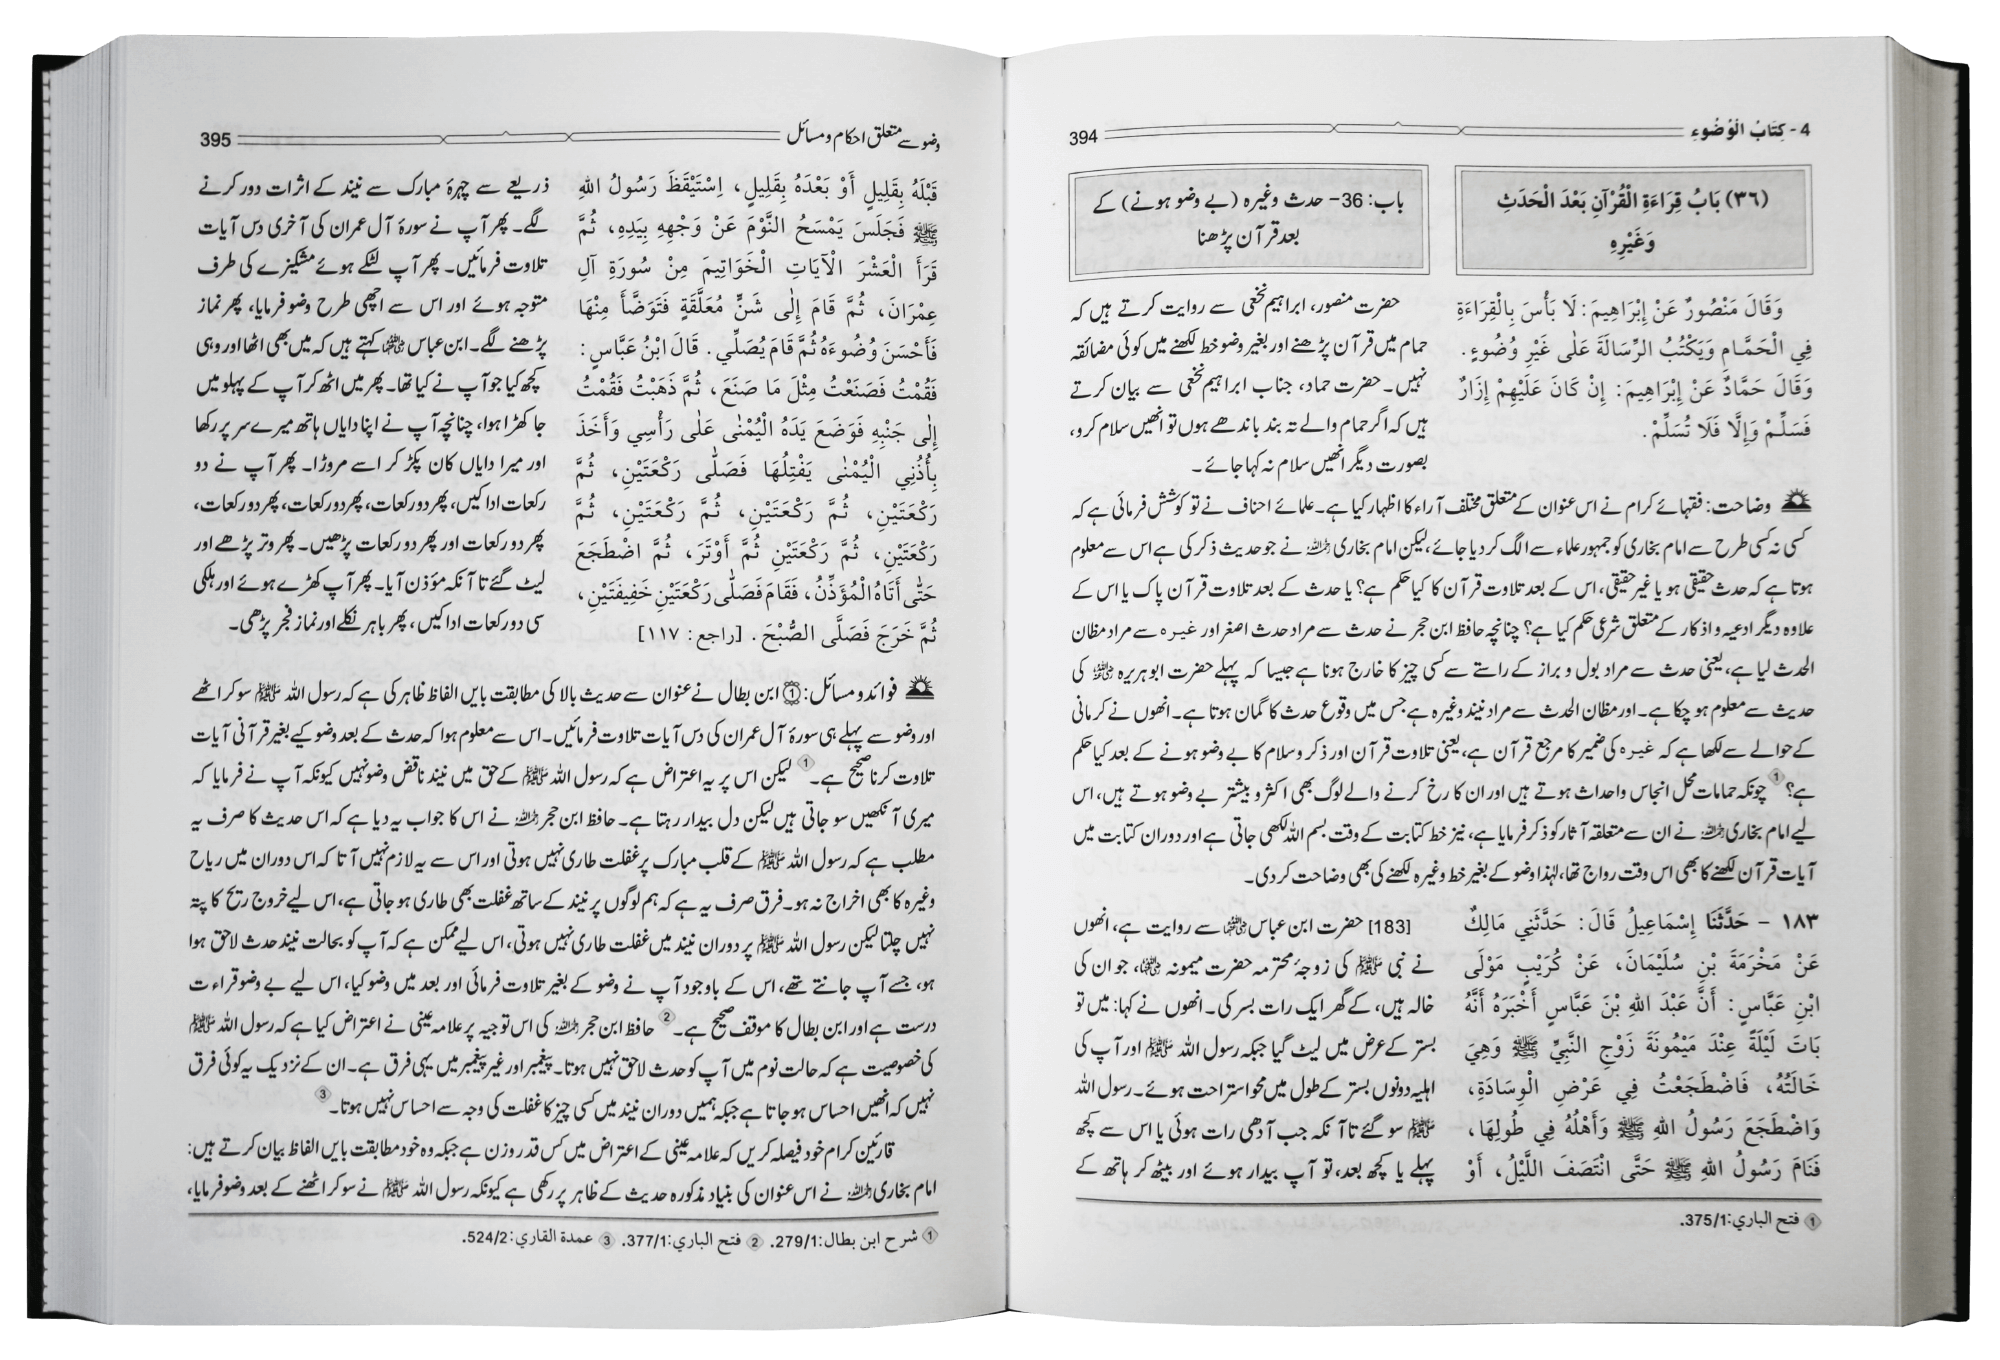 4 - كِتَابُ الْوُضُوءِ
394
(٣٦) بَابُ قِرَاءَةِ الْقُرْآنِ بَعْدَ الْحَدَثِ
وَغَيْرِهِ
باب: 36- حدث وغیرہ (بے وضو ہونے) کے
بعد قرآن پڑھنا
وَقَالَ مَنْصُورٌ عَنْ إِبْرَاهِيمَ: لَا بَأْسَ بِالْقِرَاءَةِ
فِي الْحَمَّامِ وَيَكْتُبُ الرِّسَالَةَ عَلٰى غَيْرِ وُضُوءٍ.
وَقَالَ حَمَّادٌ عَنْ إِبْرَاهِيمَ: إِنْ كَانَ عَلَيْهِمْ إِزَارٌ
فَسَلِّمْ وَإِلَّا فَلَا تُسَلِّمْ.
حضرت منصور، ابراہیم نخعی سے روایت کرتے ہیں کہ
حمام میں قرآن پڑھنے اور بغیر وضو خط لکھنے میں کوئی مضائقہ
نہیں۔ حضرت حماد، جناب ابراہیم نخعی سے بیان کرتے
ہیں کہ اگر حمام والے تہ بند باندھے ہوں تو انھیں سلام کرو،
بصورت دیگر انھیں سلام نہ کہا جائے۔
وضاحت: فقہائے کرام نے اس عنوان کے متعلق مختلف آراء کا اظہار کیا ہے۔ علمائے احناف نے تو کوشش فرمائی ہے کہ
کسی نہ کسی طرح سے امام بخاری کو جمہور علماء سے الگ کر دیا جائے، لیکن امام بخاری رحمہ اللہ نے جو حدیث ذکر کی ہے اس سے معلوم
ہوتا ہے کہ حدث حقیقی ہو یا غیر حقیقی، اس کے بعد تلاوت قرآن کا کیا حکم ہے؟ یا حدث کے بعد تلاوت قرآن پاک یا اس کے
علاوہ دیگر ادعیہ و اذکار کے متعلق شرعی حکم کیا ہے؟ چنانچہ حافظ ابن حجر نے حدث سے مراد حدث اصغر اور غیرہ سے مراد مظان
الحدث لیا ہے، یعنی حدث سے مراد بول و براز کے راستے سے کسی چیز کا خارج ہونا ہے جیسا کہ پہلے حضرت ابوہریرہ رضی اللہ عنہ کی
حدیث سے معلوم ہو چکا ہے۔ اور مظان الحدث سے مراد نیند وغیرہ ہے جس میں وقوع حدث کا گمان ہوتا ہے۔ انھوں نے کرمانی
کے حوالے سے لکھا ہے کہ غیرہ کی ضمیر کا مرجع قرآن ہے، یعنی تلاوت قرآن اور ذکر و سلام کا بے وضو ہونے کے بعد کیا حکم
ہے؟ 1 چونکہ حمامات محل انجاس واحداث ہوتے ہیں اور ان کا رخ کرنے والے لوگ بھی اکثر و بیشتر بے وضو ہوتے ہیں، اس
لیے امام بخاری رحمہ اللہ نے ان سے متعلقہ آثار کو ذکر فرمایا ہے، نیز خط کتابت کے وقت بسم اللہ لکھی جاتی ہے اور دوران کتابت میں
آیات قرآن لکھنے کا بھی اس وقت رواج تھا، لہٰذا وضو کے بغیر خط وغیرہ لکھنے کی بھی وضاحت کر دی۔
١٨٣ - حَدَّثَنَا إِسْمَاعِيلُ قَالَ: حَدَّثَنِي مَالِكٌ
عَنْ مَخْرَمَةَ بْنِ سُلَيْمَانَ، عَنْ كُرَيْبٍ مَوْلَى
ابْنِ عَبَّاسٍ: أَنَّ عَبْدَ اللهِ بْنَ عَبَّاسٍ أَخْبَرَهُ أَنَّهُ
بَاتَ لَيْلَةً عِنْدَ مَيْمُونَةَ زَوْجِ النَّبِيِّ ﷺ وَهِيَ
خَالَتُهُ، فَاضْطَجَعْتُ فِي عَرْضِ الْوِسَادَةِ،
وَاضْطَجَعَ رَسُولُ اللهِ ﷺ وَأَهْلُهُ فِي طُولِهَا،
فَنَامَ رَسُولُ اللهِ ﷺ حَتَّى انْتَصَفَ اللَّيْلُ، أَوْ
[183] حضرت ابن عباس رضی اللہ عنہما سے روایت ہے، انھوں
نے نبی ﷺ کی زوجۂ محترمہ حضرت میمونہ رضی اللہ عنہا، جو ان کی
خالہ ہیں، کے گھر ایک رات بسر کی۔ انھوں نے کہا: میں تو
بستر کے عرض میں لیٹ گیا جبکہ رسول اللہ ﷺ اور آپ کی
اہلیہ دونوں بستر کے طول میں محو استراحت ہوئے۔ رسول اللہ
ﷺ سو گئے تا آنکہ جب آدھی رات ہوئی یا اس سے کچھ
پہلے یا کچھ بعد، تو آپ بیدار ہوئے اور بیٹھ کر ہاتھ کے
1 فتح الباري: 375/1.
وضو سے متعلق احکام و مسائل
395
قَبْلَهُ بِقَلِيلٍ أَوْ بَعْدَهُ بِقَلِيلٍ، اِسْتَيْقَظَ رَسُولُ اللهِ
ﷺ فَجَلَسَ يَمْسَحُ النَّوْمَ عَنْ وَجْهِهِ بِيَدِهِ، ثُمَّ
قَرَأَ الْعَشْرَ الْآيَاتِ الْخَوَاتِيمَ مِنْ سُورَةِ آلِ
عِمْرَانَ، ثُمَّ قَامَ إِلٰى شَنٍّ مُعَلَّقَةٍ فَتَوَضَّأَ مِنْهَا
فَأَحْسَنَ وُضُوءَهُ ثُمَّ قَامَ يُصَلِّي. قَالَ ابْنُ عَبَّاسٍ:
فَقُمْتُ فَصَنَعْتُ مِثْلَ مَا صَنَعَ، ثُمَّ ذَهَبْتُ فَقُمْتُ
إِلٰى جَنْبِهِ فَوَضَعَ يَدَهُ الْيُمْنٰى عَلٰى رَأْسِي وَأَخَذَ
بِأُذُنِي الْيُمْنٰى يَفْتِلُهَا فَصَلّٰى رَكْعَتَيْنِ، ثُمَّ
رَكْعَتَيْنِ، ثُمَّ رَكْعَتَيْنِ، ثُمَّ رَكْعَتَيْنِ، ثُمَّ
رَكْعَتَيْنِ، ثُمَّ رَكْعَتَيْنِ ثُمَّ أَوْتَرَ، ثُمَّ اضْطَجَعَ
حَتّٰى أَتَاهُ الْمُؤَذِّنُ، فَقَامَ فَصَلّٰى رَكْعَتَيْنِ خَفِيفَتَيْنِ،
ثُمَّ خَرَجَ فَصَلَّى الصُّبْحَ. [راجع: ١١٧]
ذریعے سے چہرۂ مبارک سے نیند کے اثرات دور کرنے
لگے۔ پھر آپ نے سورۂ آل عمران کی آخری دس آیات
تلاوت فرمائیں۔ پھر آپ لٹکے ہوئے مشکیزے کی طرف
متوجہ ہوئے اور اس سے اچھی طرح وضو فرمایا، پھر نماز
پڑھنے لگے۔ ابن عباس رضی اللہ عنہما کہتے ہیں کہ میں بھی اٹھا اور وہی
کچھ کیا جو آپ نے کیا تھا۔ پھر میں اٹھ کر آپ کے پہلو میں
جا کھڑا ہوا، چنانچہ آپ نے اپنا دایاں ہاتھ میرے سر پر رکھا
اور میرا دایاں کان پکڑ کر اسے مروڑا۔ پھر آپ نے دو
رکعات ادا کیں، پھر دو رکعات، پھر دو رکعات، پھر دو رکعات،
پھر دو رکعات اور پھر دو رکعات پڑھیں۔ پھر وتر پڑھے اور
لیٹ گئے تا آنکہ مؤذن آیا۔ پھر آپ کھڑے ہوئے اور ہلکی
سی دو رکعات ادا کیں، پھر باہر نکلے اور نماز فجر پڑھی۔
فوائد و مسائل: 1 ابن بطال نے عنوان سے حدیث بالا کی مطابقت بایں الفاظ ظاہر کی ہے کہ رسول اللہ ﷺ سو کر اٹھے
اور وضو سے پہلے ہی سورۂ آل عمران کی دس آیات تلاوت فرمائیں۔ اس سے معلوم ہوا کہ حدث کے بعد وضو کیے بغیر قرآنی آیات
تلاوت کرنا صحیح ہے۔ 1 لیکن اس پر یہ اعتراض ہے کہ رسول اللہ ﷺ کے حق میں نیند ناقض وضو نہیں کیونکہ آپ نے فرمایا کہ
میری آنکھیں سو جاتی ہیں لیکن دل بیدار رہتا ہے۔ حافظ ابن حجر رحمہ اللہ نے اس کا جواب یہ دیا ہے کہ اس حدیث کا صرف یہ
مطلب ہے کہ رسول اللہ ﷺ کے قلب مبارک پر غفلت طاری نہیں ہوتی اور اس سے یہ لازم نہیں آتا کہ اس دوران میں ریاح
وغیرہ کا بھی اخراج نہ ہو۔ فرق صرف یہ ہے کہ ہم لوگوں پر نیند کے ساتھ غفلت بھی طاری ہو جاتی ہے، اس لیے خروج ریح کا پتہ
نہیں چلتا لیکن رسول اللہ ﷺ پر دوران نیند میں غفلت طاری نہیں ہوتی، اس لیے ممکن ہے کہ آپ کو بحالت نیند حدث لاحق ہوا
ہو، جسے آپ جانتے تھے، اس کے باوجود آپ نے وضو کے بغیر تلاوت فرمائی اور بعد میں وضو کیا، اس لیے بے وضو قراءت
درست ہے اور ابن بطال کا موقف صحیح ہے۔ 2 حافظ ابن حجر رحمہ اللہ کی اس توجیہ پر علامہ عینی نے اعتراض کیا ہے کہ رسول اللہ ﷺ
کی خصوصیت ہے کہ حالت نوم میں آپ کو حدث لاحق نہیں ہوتا۔ پیغمبر اور غیر پیغمبر میں یہی فرق ہے۔ ان کے نزدیک یہ کوئی فرق
نہیں کہ انھیں احساس ہو جاتا ہے جبکہ ہمیں دوران نیند میں کسی چیز کا غفلت کی وجہ سے احساس نہیں ہوتا۔ 3
قارئین کرام خود فیصلہ کریں کہ علامہ عینی کے اعتراض میں کس قدر وزن ہے جبکہ وہ خود مطابقت بایں الفاظ بیان کرتے ہیں:
امام بخاری رحمہ اللہ نے اس عنوان کی بنیاد مذکورہ حدیث کے ظاہر پر رکھی ہے کیونکہ رسول اللہ ﷺ نے سو کر اٹھنے کے بعد وضو فرمایا،
1 شرح ابن بطال: 279/1. 2 فتح الباري: 377/1. 3 عمدة القاري: 524/2.